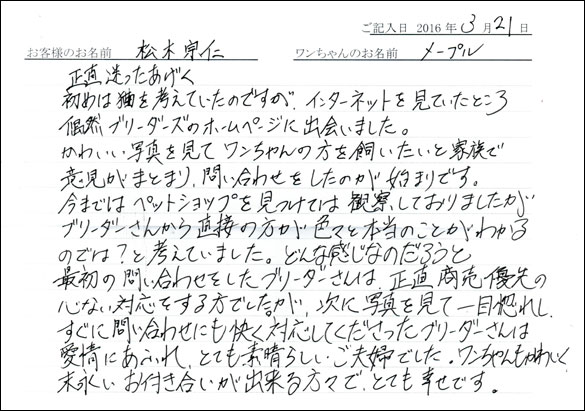 ご記入日 2016年3月21日
お客様のお名前 松木宗仁 ワンちゃんのお名前 メープル
正直迷ったあげく
初めは猫を考えていたのですが、インターネットを見ていたところ
偶然ブリーダーズのホームページに出会いました。
かわいい写真を見てワンちゃんの方を飼いたいと家族で
意見がまとまり、問い合わせをしたのが始まりです。
今まではペットショップを見つけては観察しておりましたが
ブリーダーさんから直接の方が色々と本当のことがわかる
のでは?と考えていました。どんな感じなのだろうと
最初の問い合わせをしたブリーダーさんは、正直商売優先の
心ない対応をする方でしたが、次に写真を見て一目惚れし、
すぐに問い合わせにも快く対応してくださったブリーダーさんは
愛情にあふれ、とても素晴らしいご夫婦でした。ワンちゃんもかわいく
末永いお付き合いが出来る方々で、とても幸せです。